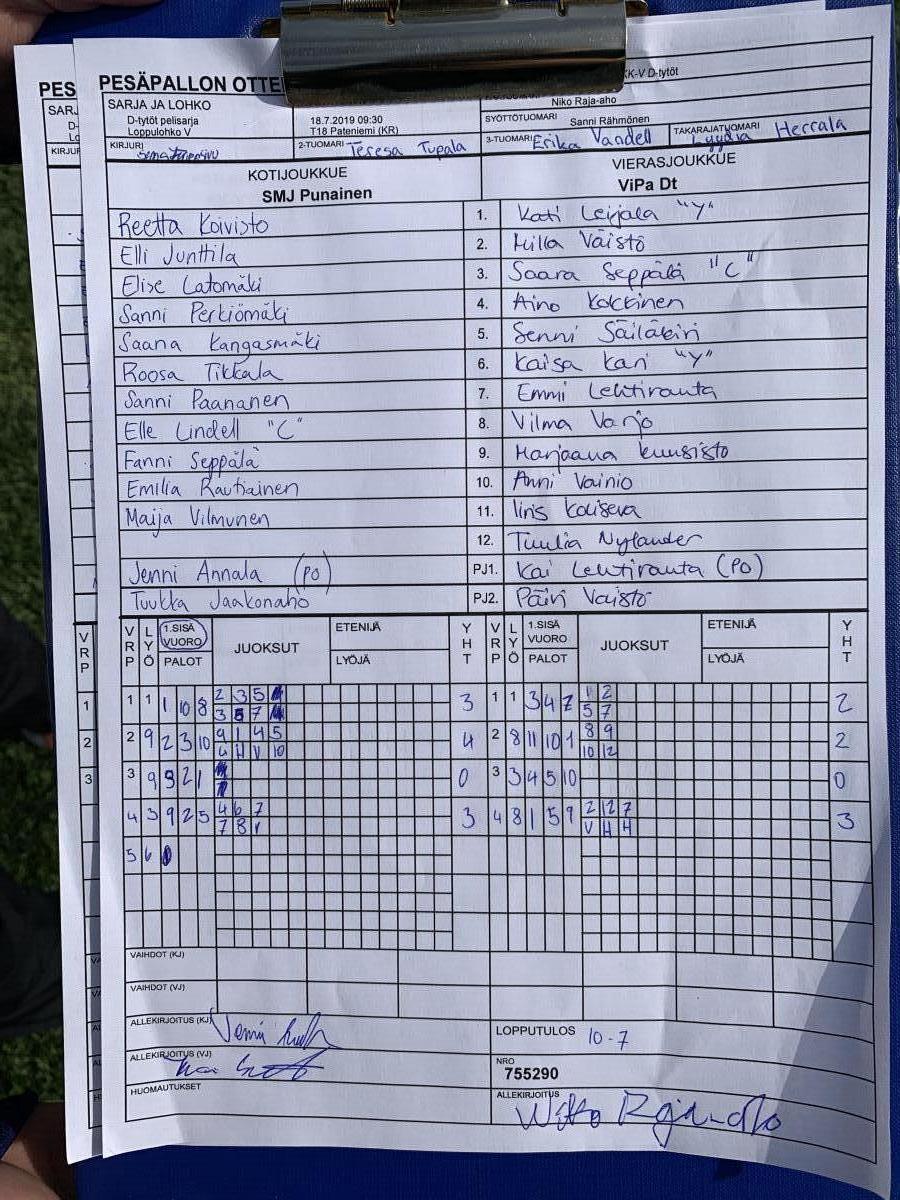 PESÄPALLON OTTE
KK-V D-tytöt
SARJA JA LOHKO
D-tytöt pelisarja
Loppulohko V
18.7.2019 09:30
T18 Pateniemi (KR)
Niko Raja-aho
SYÖTTÖTUOMARI Sanni Rähmönen
KIRJURI
2-TUOMARI Teresa Tupala
3-TUOMARI Erika Vandell
TAKARAJATUOMARI Lyydia Herrala
KOTIJOUKKUE
SMJ Punainen
VIERASJOUKKUE
ViPa Dt
Reetta Koivisto 1. Kati Leijala "Y"
Elli Junttila 2. Milla Väistö
Elise Latomäki 3. Saara Seppälä "C"
Sanni Perkiömäki 4. Aino Kokkinen
Saana Kangasmäki 5. Senni Säiläkivi
Roosa Tikkala 6. Kaisa Kari "Y"
Sanni Paananen 7. Emmi Lehtiranta
Elle Lindell "C" 8. Vilma Varjo
Fanni Seppälä 9. Marjaana Kuusisto
Emilia Rautiainen 10. Anni Vainio
Maija Vilmunen 11. Iiris Koliseva
12. Tuulia Nylander
Jenni Annala (PO) PJ1. Kai Lehtiranta (PO)
Tuukka Jaakonaho PJ2. Päivi Väistö
VRP LYÖ 1.SISÄ VUORO PALOT JUOKSUT ETENIJÄ LYÖJÄ YHT VRP LYÖ 1.SISÄ VUORO PALOT JUOKSUT ETENIJÄ LYÖJÄ YHT
1 1 1 10 8 2 3 5 3 1 1 3 4 7 1 2 2
3 5 7 5 7
2 9 2 3 10 9 1 4 5 4 2 8 11 10 1 8 9 2
4 H V 10 10 12
3 9 3 2 1 0 3 3 4 5 10 0
4 3 9 2 5 4 6 7 3 4 8 1 5 9 2 12 7 3
7 8 V V H H
5 6
VAIHDOT (KJ)
VAIHDOT (VJ)
ALLEKIRJOITUS (KJ)
LOPPUTULOS 10-7
ALLEKIRJOITUS (VJ)
NRO
755290
HUOMAUTUKSET
ALLEKIRJOITUS